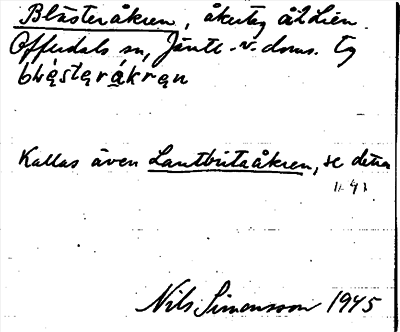 Blästeråkren, åkerteg åt Lien.
Offerdals sn, Jämtl. v. doms. tg
blästeråkrən
Kallas även Lantbritaåkren, se detta
11 43
Nils Simonsson 1945